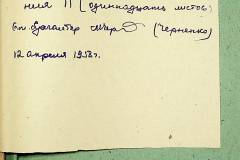 ния 11 (одиннадцать листов)
Гл. бухгалтер (Черненко)
12 апреля 1958 г.